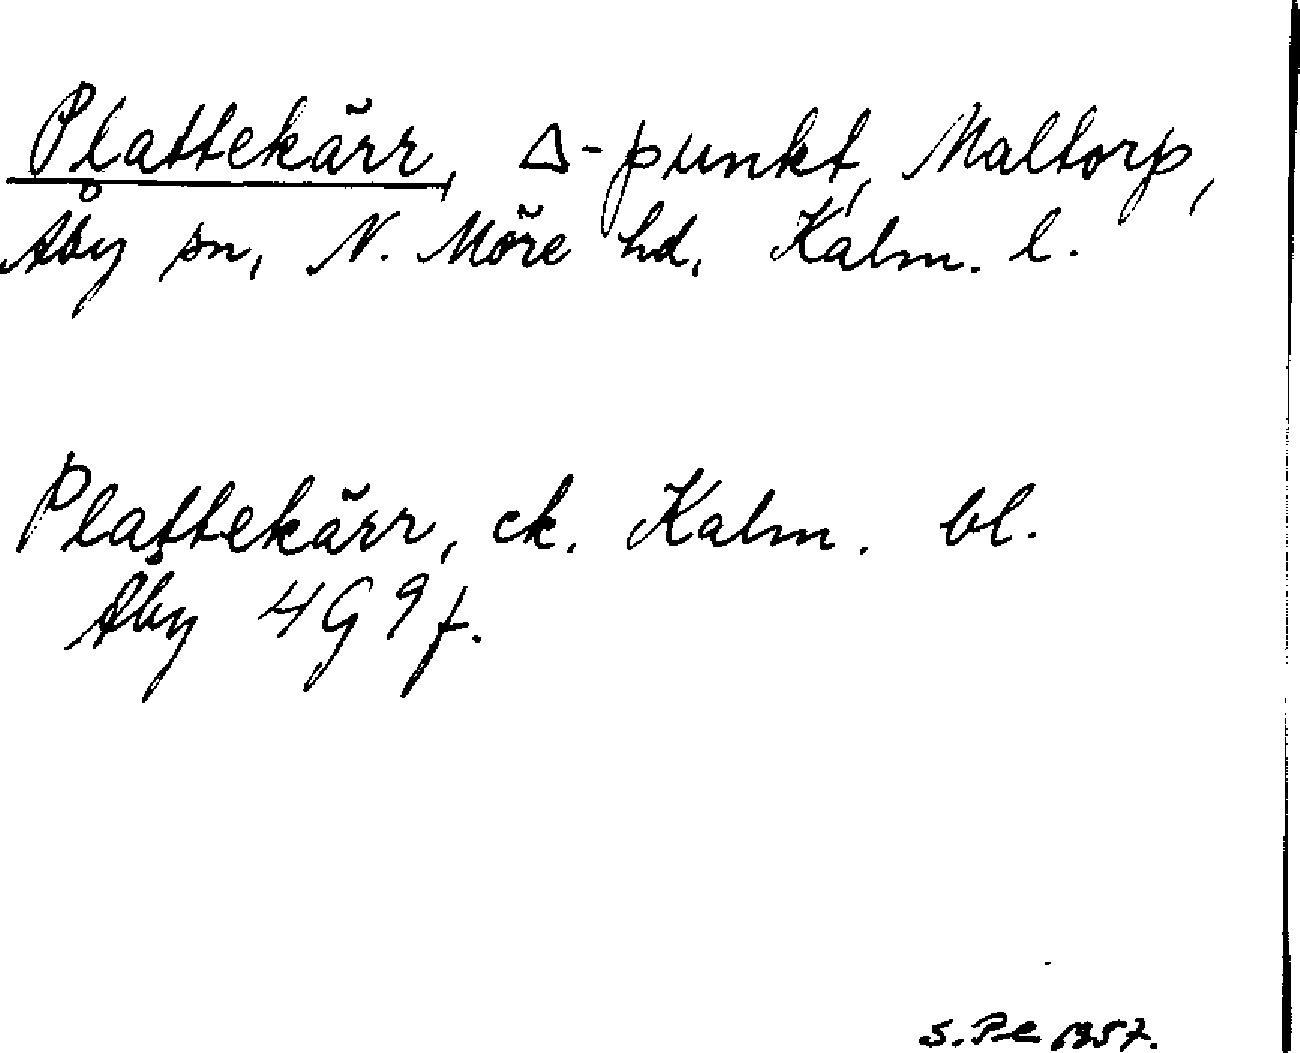 Plattekärr, Δ-punkt, Maltorp,
Åby sn, N. Möre hd, Kalm. l.
Plattekärr, ek. Kalm. bl.
Åby 4G9f.
S. Pe 1957.